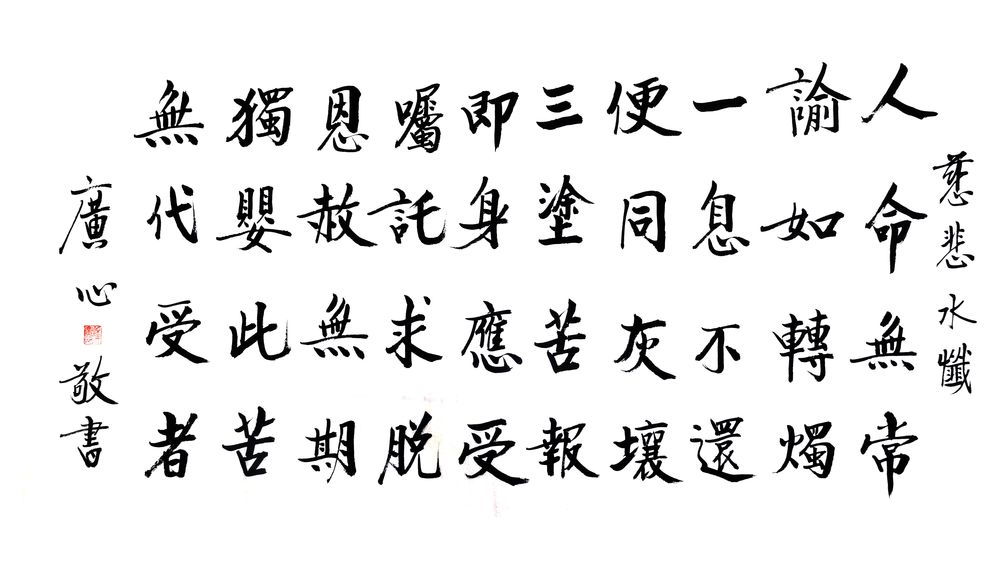 慈悲水懺
人命無常
諭如轉燭
一息不還
便同灰壤
三塗苦報
即身應受
囑託求脫
恩赦無期
獨嬰此苦
無代受者
廣心敬書